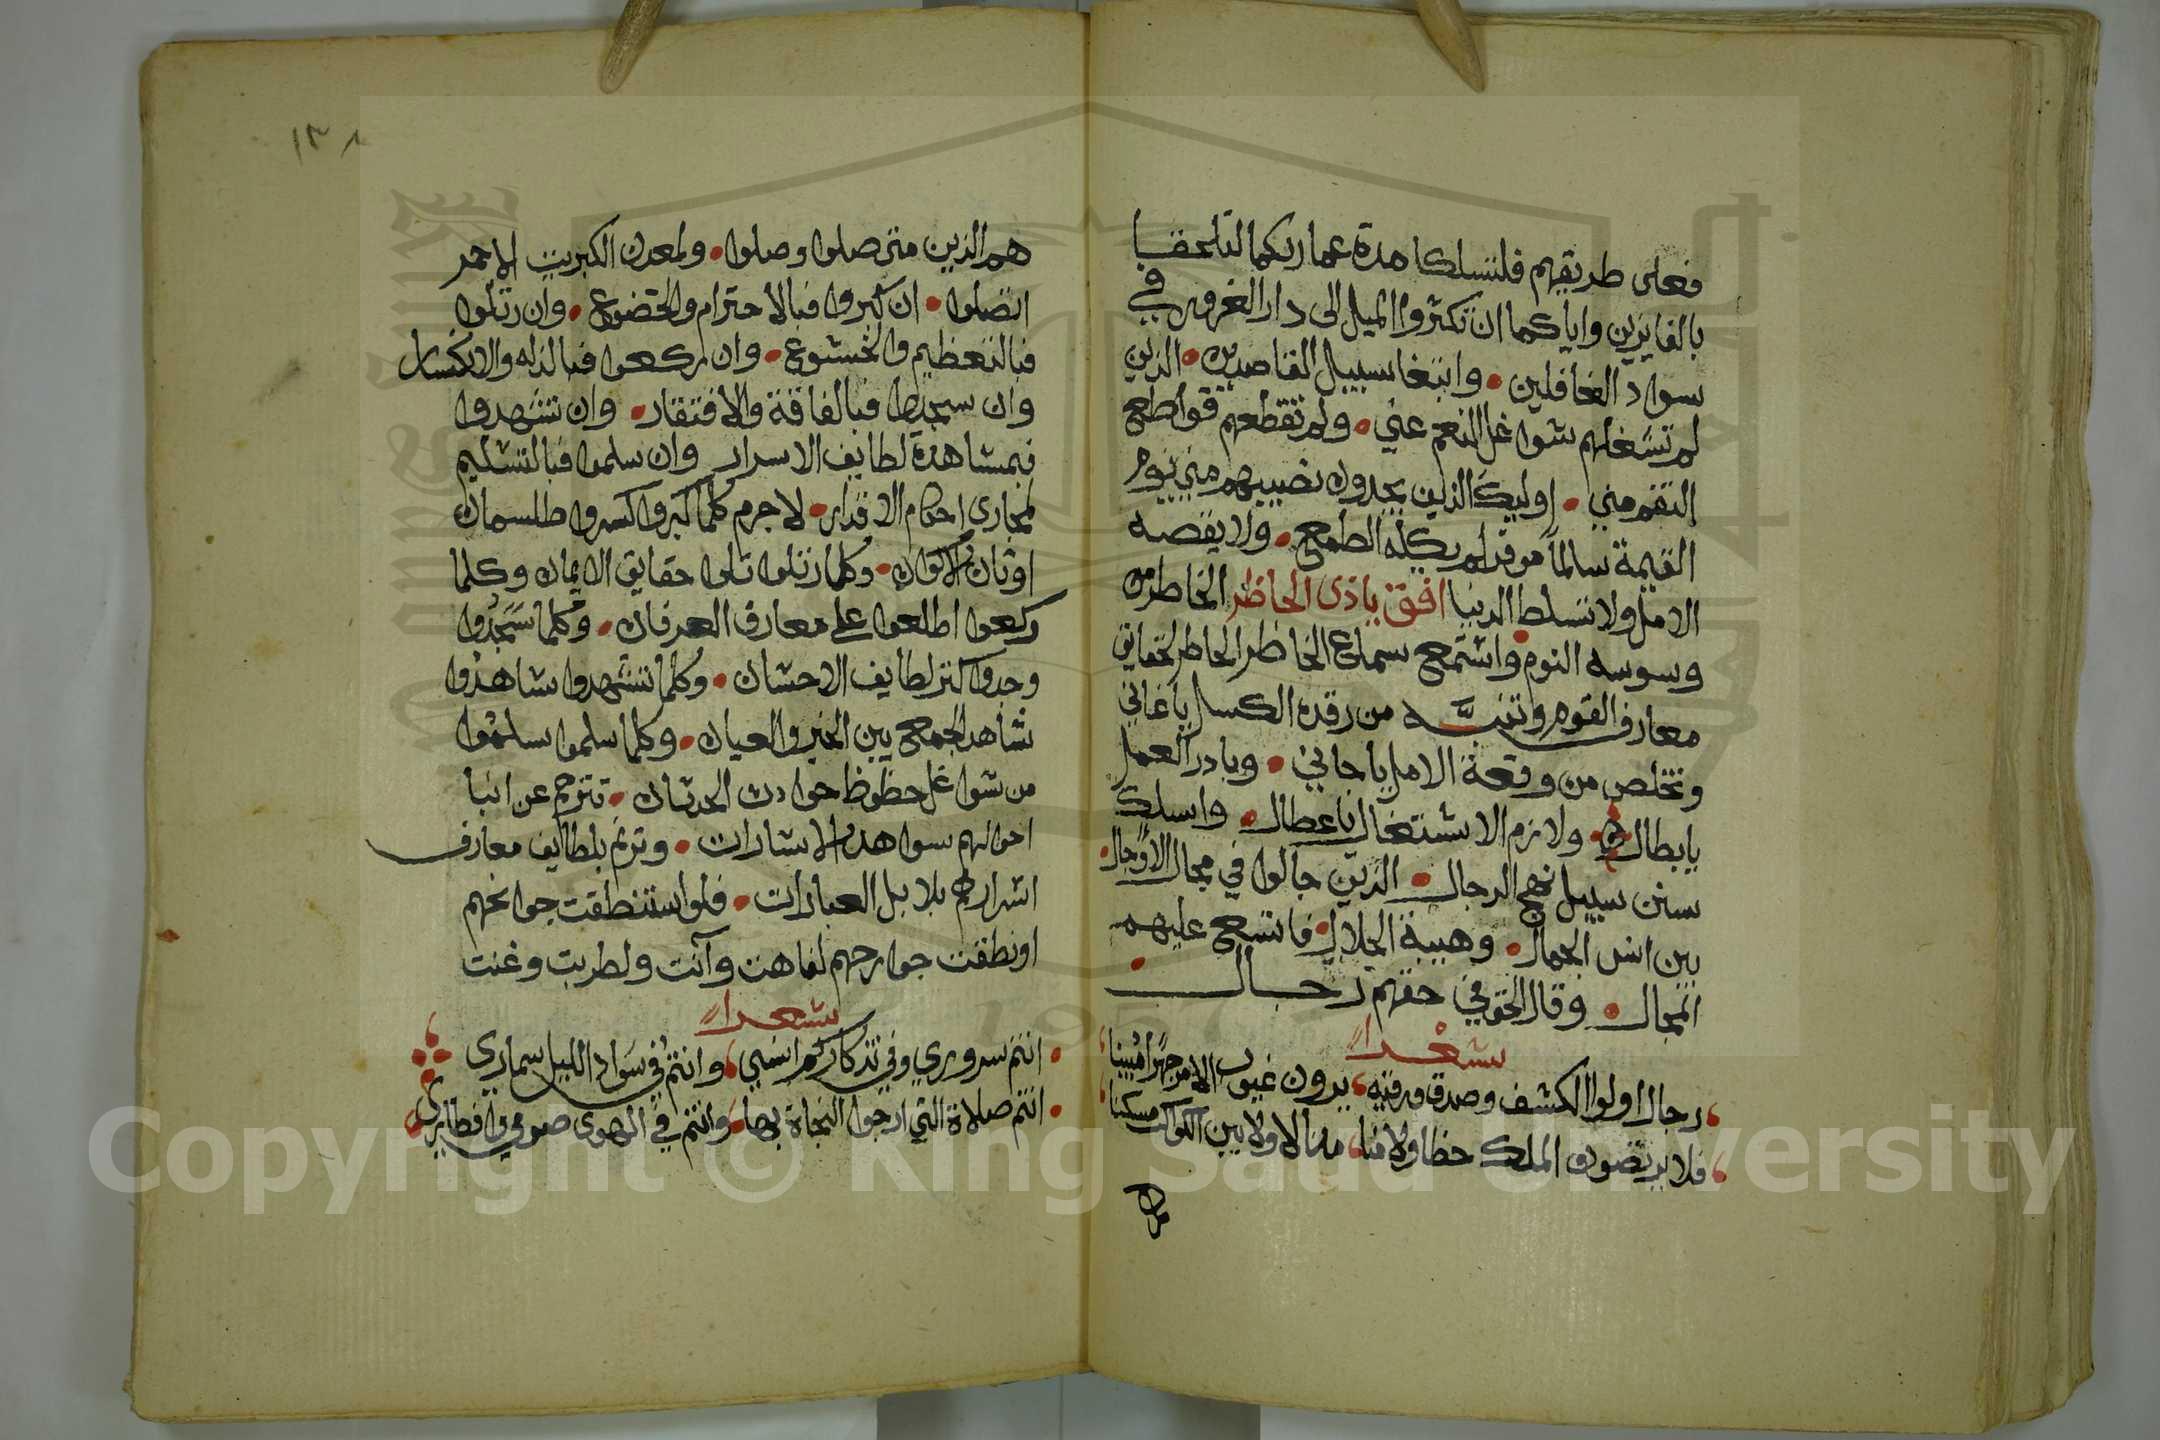 فعلى طريقهم فلتسلكا مدة عماركما لتلحقا
بالفايزين واياكما ان تكثروا الميل الى دار الغرور في
سواد الغافلين • وابتغا سبيل القاصدين • الذين
لم تشغلهم شواغل النعم عني • ولم تقطعهم قواطع
النقم مني • اوليك الذين يجدون نصيبهم مني يوم
القيمة سالماً موفرا لم يكله الطمع • ولا يقصه
الامل ولا تسلط الدنيا افق ياذى الحاظر الخاطر من
وسوسه النوم • واستمع سماع الخاطر الحاطر لحقايق
معارف القوم وتنبه من رقده الكسل ياغاني
وتخلص من وقعة الامل ياجاني • وبادر العمل
يابطال • ولازم الاشتغال ياعطال • واسلك
سنن سبيل نهج الرجال • الذين جالوا في مجال الاوجال •
بين انس الجمال • وهيبة الجلال • فاتسع عليهم
المجال • وقال الحق في حقهم رجال •
شعرا
رجال اولوا الكشف وصدق ورقيه، يرون غيوب الامر جهرا مبينا
فلا يرتضون الملك حظا ولا فنا، منالا ولا بين الكواكب مسكنا
هم
١٣٨
هم الذين متى صلوا وصلوا • ولمعدن الكبريت الاحمر
اتصلوا • ان كبروا فبالاحترام والخضوع • وان رتلوا
فبالتعظيم والخشوع • وان ركعوا فبالذله والانكسار
وان سجدوا فبالفاقة والافتقار • وان تشهدوا
فبمشاهدة لطايف الاسرار وان سلموا فبالتسليم
لمجاري احكام الاقدار • لا جرم كلما كبروا كسروا طلسمان
اوثان الاكوان • وكلما رتلوا تلوا حقايق الايمان وكلما
ركعوا اطلعوا على معارف العرفان • وكلما سجدوا
وجدوا كنز لطايف الاحسان • وكلما تشهدوا شاهدوا
شاهد الجمع بين الخبر والعيان • وكلما سلموا سلموا
من شواغل حظوظ حوادث الحدثان • تترجم عن انبا
احوالهم سواهد الاشارات • وترنم بلطايف معارف
اسرارهم بلابل العبارات • فلو استنطقت جوانحهم
او نطقت جوارحهم لفاهت وآنت ولطربت وغنت
شعرا
• انتم سروري وفي تذكاركم انسي، وانتم في سواد الليل سماري
• انتم صلاة التي ارجوا النجاة بها، وانتم في الهوى صومي وافطاري
Copyright © King Saud University
King Saud University
1957